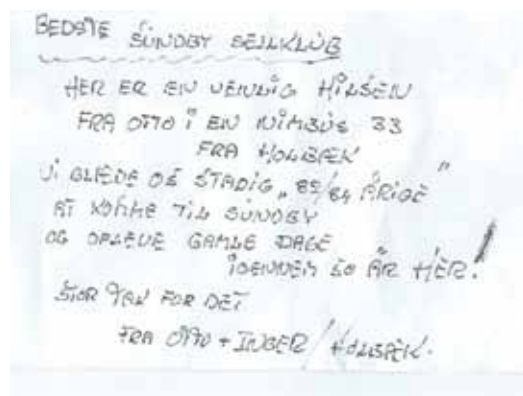 BEDSTE SUNDBY SEJLKLUB
HER ER EN VENLIG HILSEN
FRA OTTO I EN NIMBUS 33
FRA HOLBÆK
VI GLÆDE OS STADIG „ 85/84 ÅRIGE ”
AT KOMME TIL SUNDBY
OG OPLEVE GAMLE DAGE
IGENNEM 20 ÅR HER!
STOR TAK FOR DET
FRA OTTO + INGER / HOLBÆK.